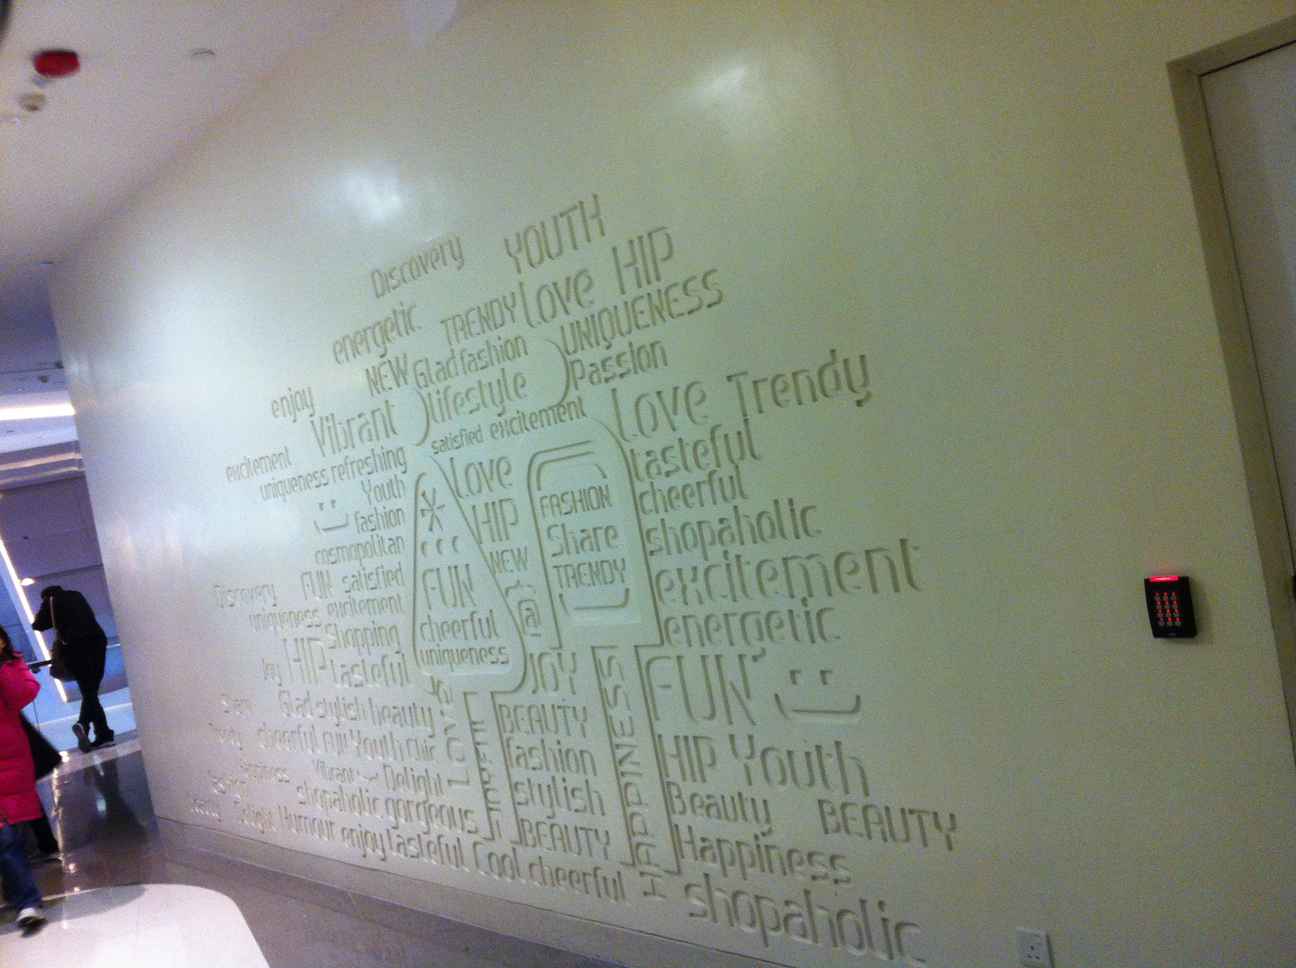 Discovery YOUTH
energetic TRENDY Love HIP
enjoy NEW Glad fashion UNIQUENESS
Vibrant lifestyle Passion
excitement satisfied excitement Love Trendy
uniqueness refreshing Love tasteful
Youth HIP FASHION cheerful
fashion NEW Share shopaholic
cosmopolitan TRENDY excitement
Discovery FUN satisfied FUN @ energetic
uniqueness excitement cheerful
Shopping uniqueness JOY FUN
Joy HIP tasteful
Glad stylish beauty LOVE BEAUTY HAPPINESS HIP Youth
cheerful FUN Youth chic fashion
Vibrant Delight stylish Beauty BEAUTY
shopaholic gorgeous BEAUTY Happiness
Delight Humour enjoy tasteful Cool cheerful shopaholic